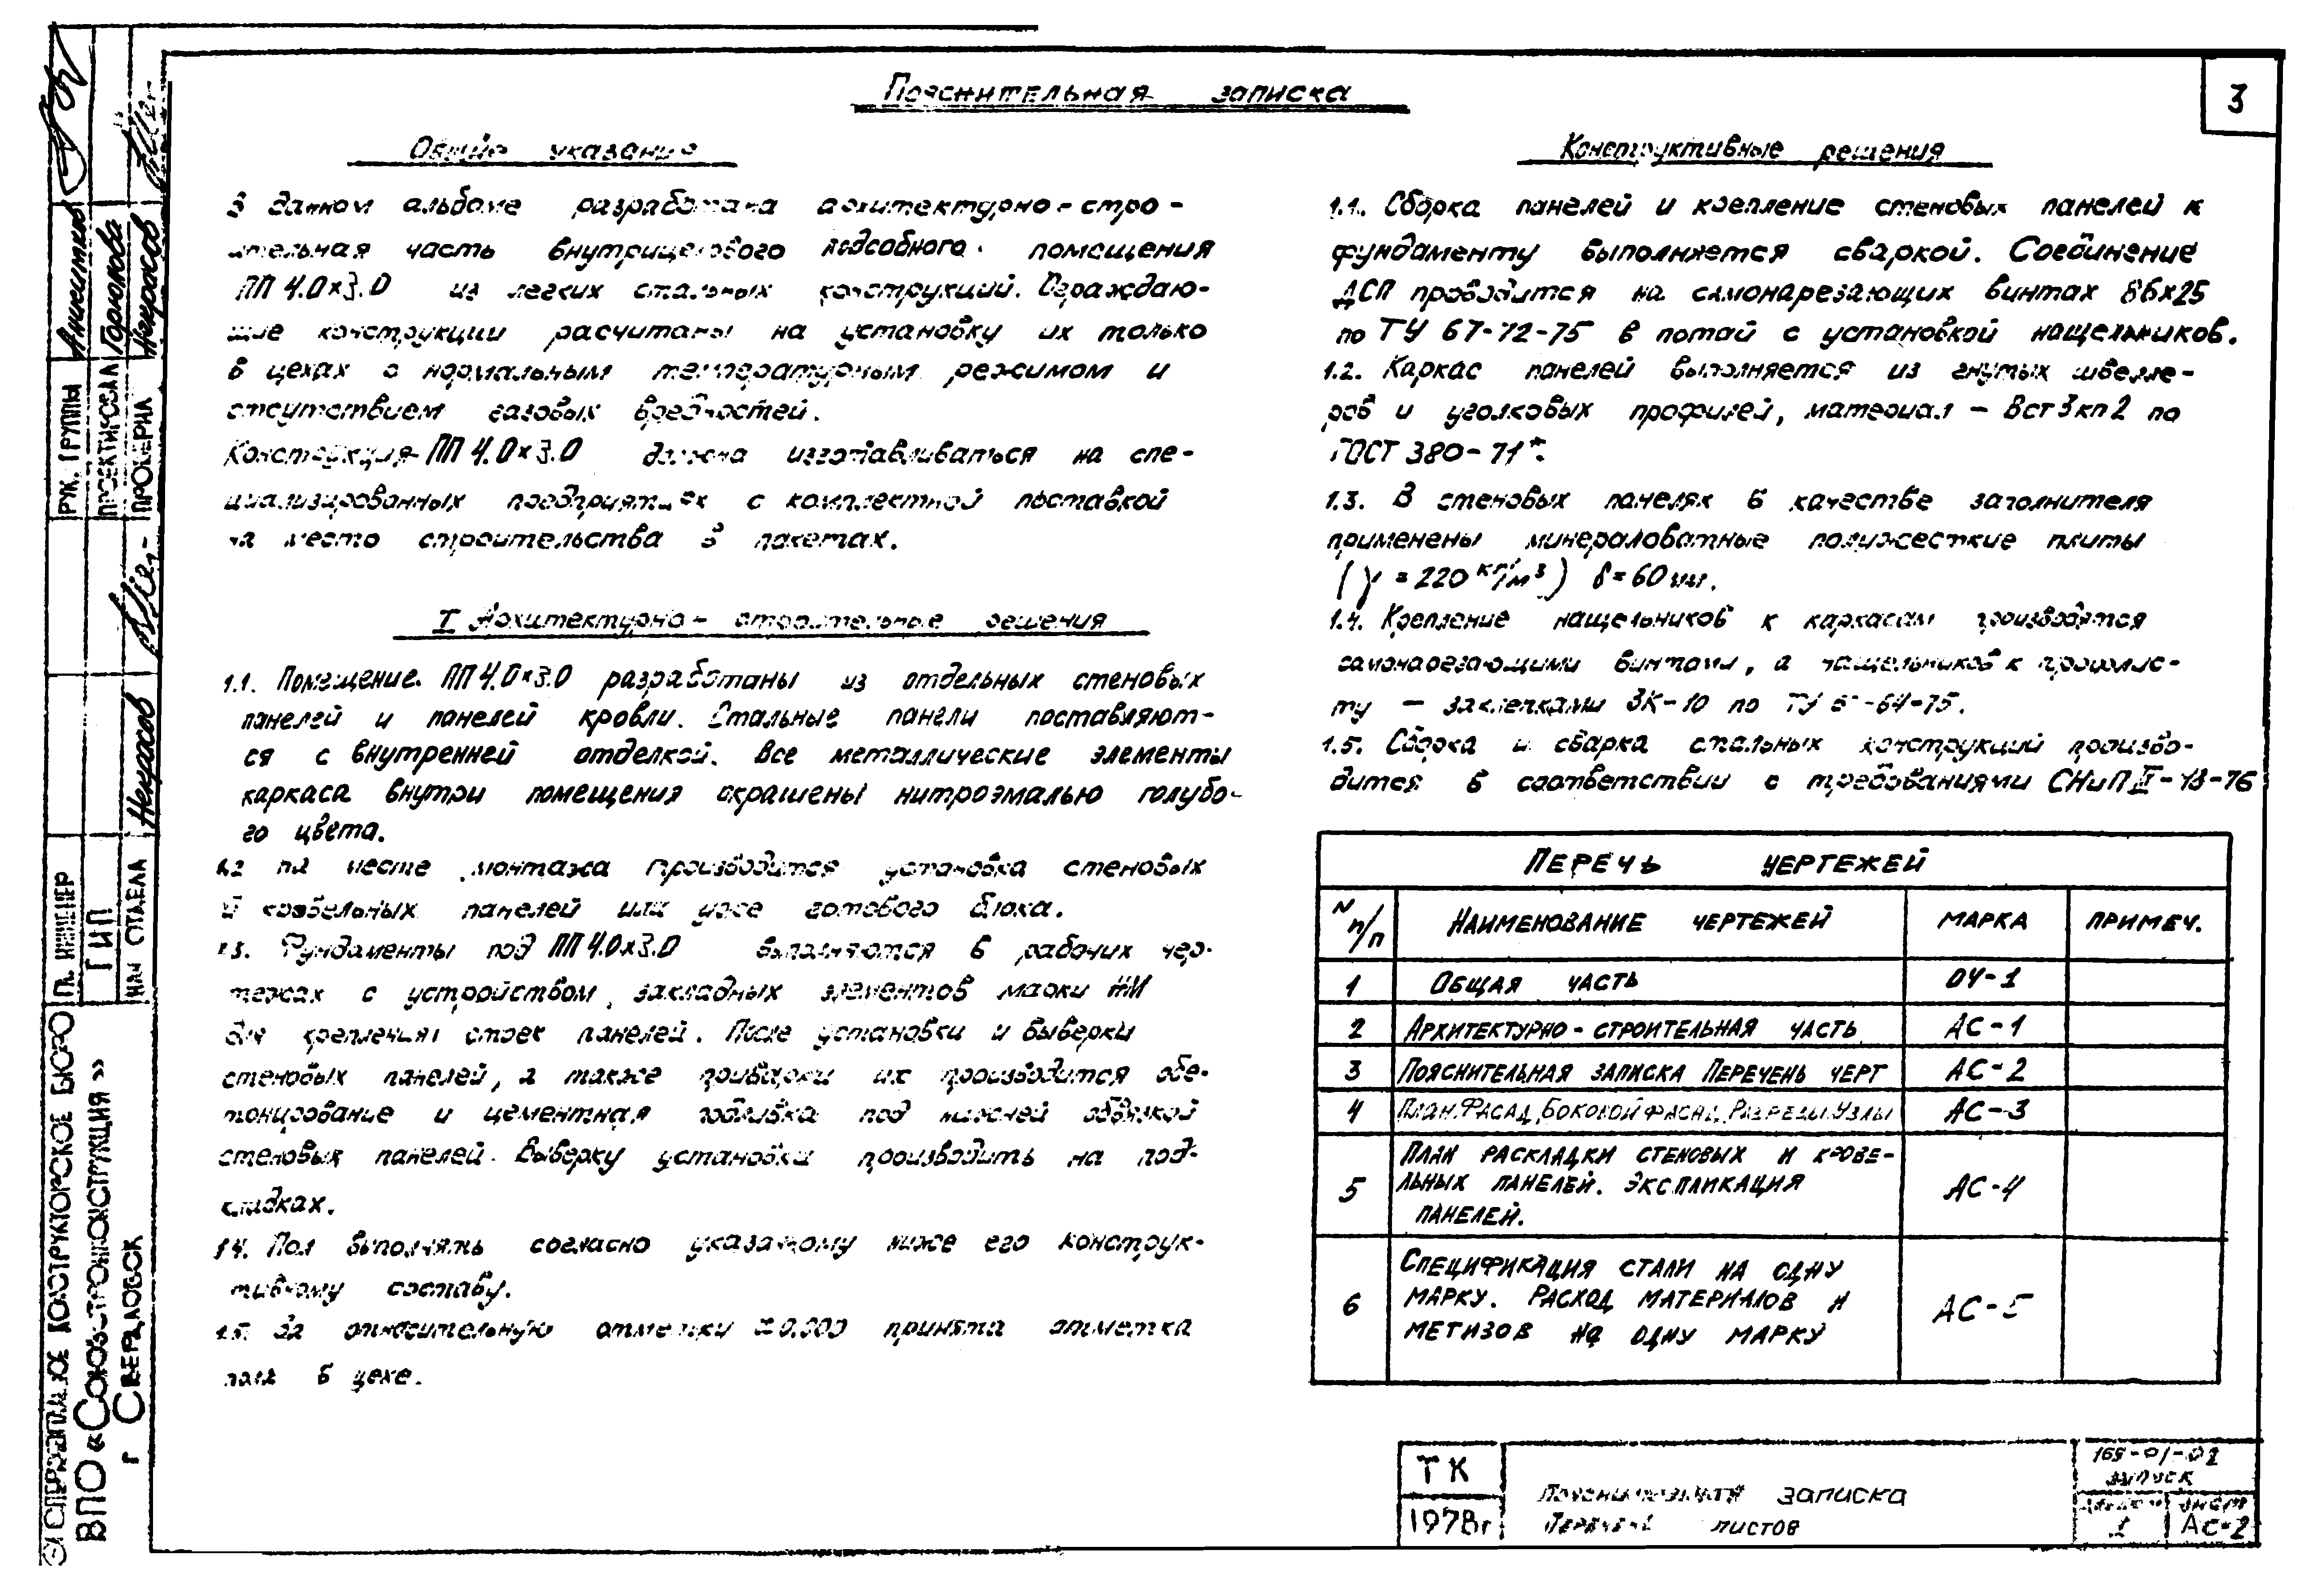 Пояснительная записка
3
Общие указания
В данном альбоме разработана архитектурно-стро-
ительная часть внутрицехового подсобного помещения
ПП 4.0×3.0 из легких стальных конструкций. Ограждаю-
щие конструкции расчитаны на установку их только
в цехах с нормальным температурным режимом и
отсутствием газовых вредностей.
Конструкция ПП 4.0×3.0 должна изготавливаться на спе-
циализированных предприятиях с комплектной поставкой
на место строительства в пакетах.
I Архитектурно-строительные решения
1.1. Помещение ПП 4.0×3.0 разработаны из отдельных стеновых
панелей и панелей кровли. Стальные панели поставляют-
ся с внутренней отделкой. Все металлические элементы
каркаса внутри помещения окрашены нитроэмалью голубо-
го цвета.
1.2 На месте монтажа производится установка стеновых
и кровельных панелей или уже готового блока.
1.3. Фундаменты под ПП 4.0×3.0 выполняются в рабочих чер-
тежах с устройством закладных элементов марки МИ
для крепления стоек панелей. После установки и выверки
стеновых панелей, а также приварки их производится обе-
тонирование и цементная подливка под нижней обвязкой
стеновых панелей. Выверку установки производить на под-
кладках.
1.4. Пол выполнять согласно указанному ниже его конструк-
тивному составу.
1.5. За относительную отметку ±0.000 принята отметка
пола в цехе.
Конструктивные решения
1.1. Сборка панелей и крепление стеновых панелей к
фундаменту выполняется сваркой. Соединение
ДСП проводится на самонарезающих винтах В6×25
по ТУ 67-72-75 в потай с установкой нащельников.
1.2. Каркас панелей выполняется из гнутых швелле-
ров и уголковых профилей, материал – Вст3кп2 по
ГОСТ 380-71*.
1.3. В стеновых панелях в качестве заполнителя
применены минераловатные полужесткие плиты
(γ = 220 кг/м³) δ = 60 мм.
1.4. Крепление нащельников к каркасам производятся
самонарезающими винтами, а нащельников к профлис-
ту – заклепками ЗК-10 по ТУ -64-75.
1.5. Сборка и сварка стальных конструкций произво-
дится в соответствии с требованиями СНиП III-18-76
Перечь чертежей
N п/п Наименование чертежей Марка Примеч.
1 Общая часть ОЧ-1
2 Архитектурно-строительная часть АС-1
3 Пояснительная записка Перечень черт АС-2
4 План. Фасад, Боковой фасад, Разрезы. Узлы АС-3
5 План раскладки стеновых и крове-
льных панелей. Экспликация
панелей.
АС-4
6 Спецификация стали на одну
марку. Расход материалов и
метизов на одну марку
АС-5
ТК
1978г
Пояснительная записка
Перечень листов
выпуск
1
лист
АС-2
Рук. группы Аникитков
Проектировал Горюнова
Проверил Некрасов
Гл. инженер
ГИП
Нач отдела Некрасов
Специальное конструкторское бюро
ВПО «Союзстройконструкция»
г Свердловск